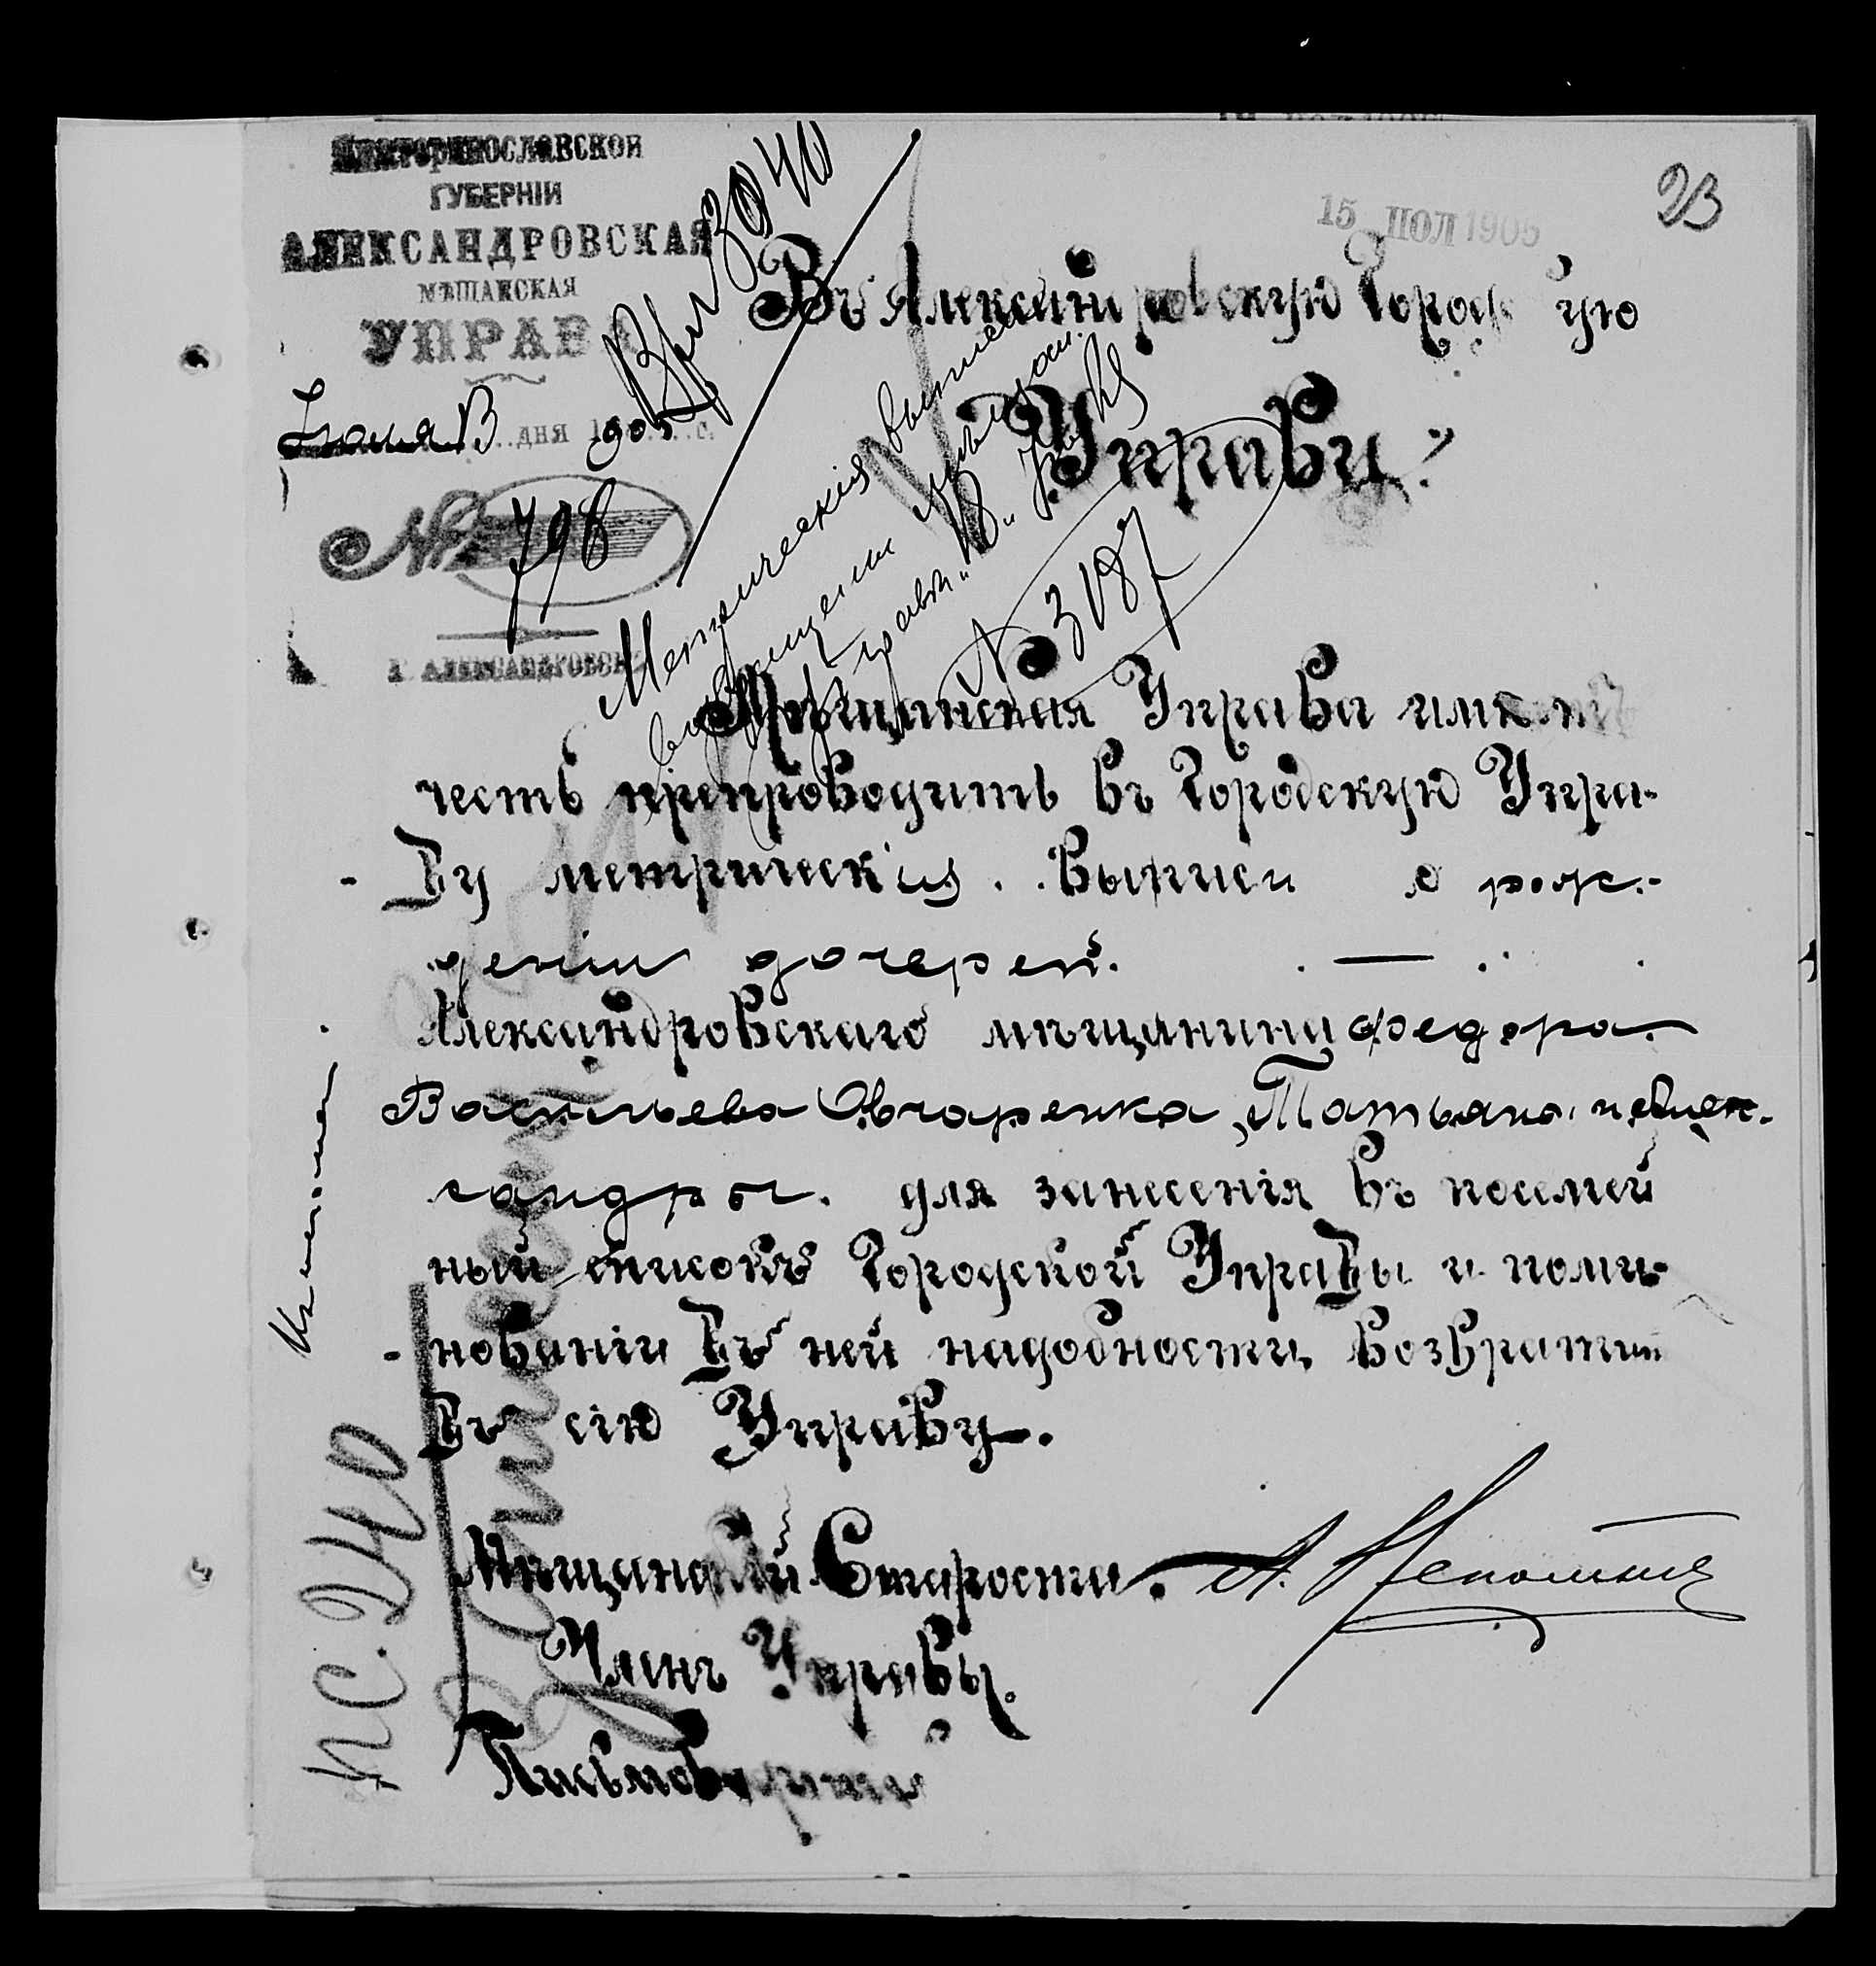 Екатеринославской
ГУБЕРНІИ
АЛЕКСАНДРОВСКАЯ
МѢЩАНСКАЯ
УПРАВА
Іюля 13 дня 1905 г.
№ 798
Г. АЛЕКСАНДРОВСКЪ
Вх. 3040
15 ІЮЛ 1905
23
Въ Александровскую Городскую
Управу.
Метрическія выписи
возвращены Мѣщан.
Управѣ
№ 3187
Мѣщанская Управа имѣетъ
честь препроводить въ Городскую Упра-
ву метрическія выписи о рож-
деніи дочерей
Александровскаго мѣщанина Федора
Васильева Овчаренка, Татьяны и Алек-
сандры. для занесенія въ посемей
ный списокъ Городской Управы и поми-
нованіи въ ней надобности возвратить
въ сію Управу.
Мѣщанскій Староста
Членъ Управы.
Письмоводитель
п.с. 240